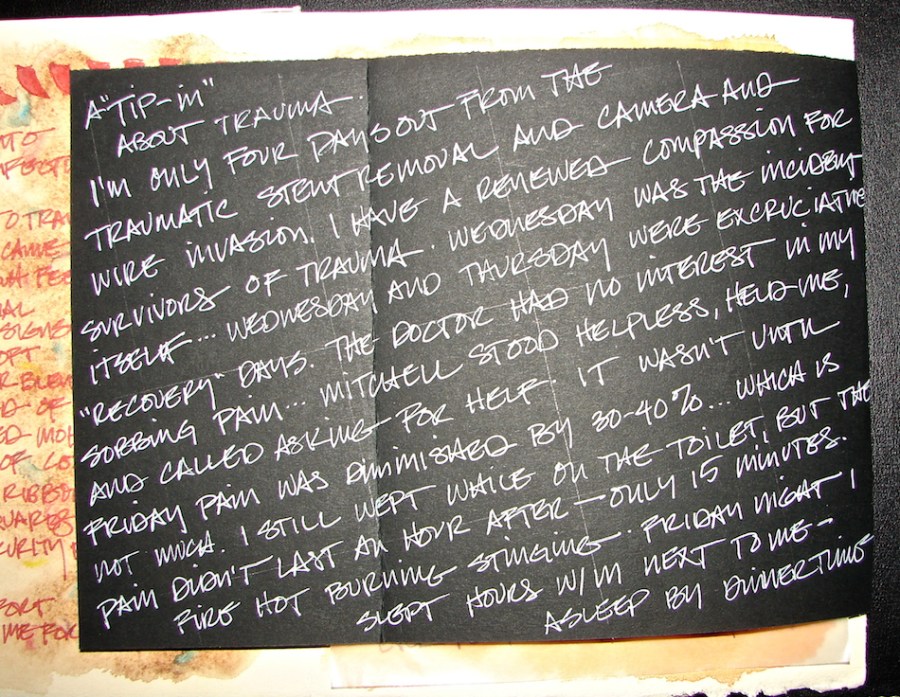 A "TiP-in"
ABOUT TRAUMA.
I'M ONLY FOUR DAYS OUT FROM THE
TRAUMATIC STENT REMOVAL AND CAMERA AND
WIRE INVASION. I HAVE A RENEWED COMPASSION FOR
SURVIVORS OF TRAUMA. WEDNESDAY WAS THE INCIDENT
ITSELF... WEDNESDAY AND THURSDAY WERE EXCRUCIATING
"RECOVERY" DAYS. THE DOCTOR HAD NO INTEREST IN MY
SOBBING PAIN... MITCHELL STOOD HELPLESS, HELD ME,
AND CALLED ASKING FOR HELP. IT WASN'T UNTIL
FRIDAY PAIN WAS DIMMISHED BY 30-40%... WHICH IS
NOT MUCH. I STILL WEPT WHILE ON THE TOILET, BUT THE
PAIN DIDN'T LAST AN HOUR AFTER — ONLY 15 MINUTES.
FIRE HOT BURNING STINGING. FRIDAY NIGHT I
SLEPT HOURS W/M NEXT TO ME —
ASLEEP BY DINNERTIME